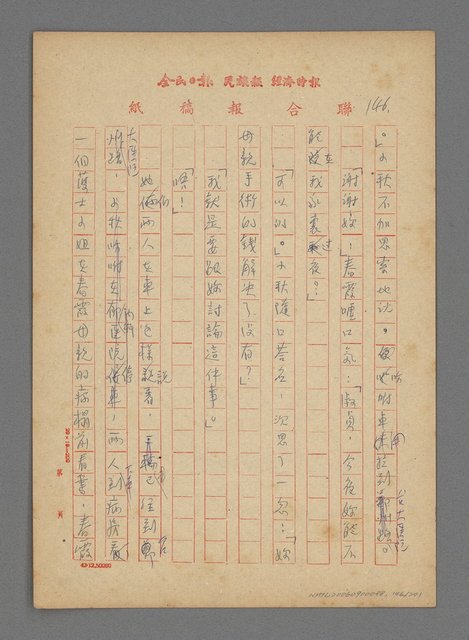 全民日報 民族報 經濟時報
聯合報稿紙
146.
。」小秋不加思索地說。便吩咐車開到台大醫院。
「謝謝妳!」春霞嘆口氣:「淑貞,今夜妳能不
能在我家裏過夜?」
「可以的。」小秋隨口答名,沉思了一忽:「妳
母親手術的錢解決了沒有?」
「我就是要跟妳討論這件事。」
「唔!」
她倆兩人在車上這樣說著,車已經到
大醫院,小秋吩咐在醫院停車,兩人到病房
一個護士小姐在春霞母親的病榻前看護,春霞
第 頁
NMTL20060900098, 146/201